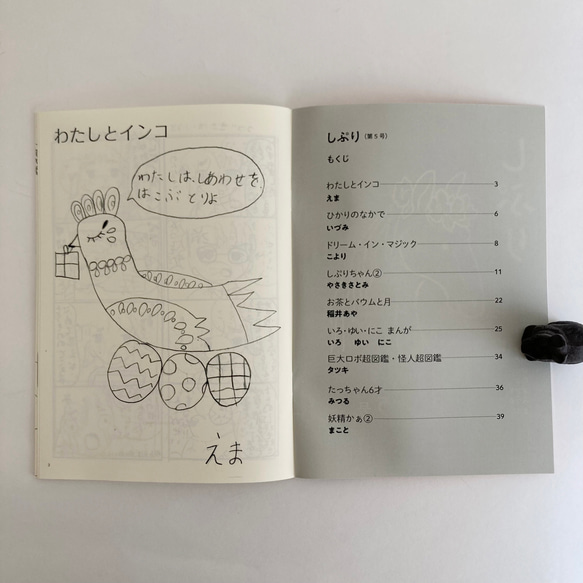 わたしとインコ
わたしは、しあわせを
はこぶ とりよ
えま
しぷり（第5号）
もくじ
わたしとインコ 3
えま
ひかりのなかで 6
いづみ
ドリーム・イン・マジック 8
こより
しぷりちゃん② 11
やさきさとみ
お茶とバウムと月 22
稲井あや
いろ・ゆい・にこ まんが 25
いろ ゆい にこ
巨大ロボ超図鑑・怪人超図鑑 34
タツキ
たっちゃん6才 36
みつる
妖精かぁ② 39
まこと